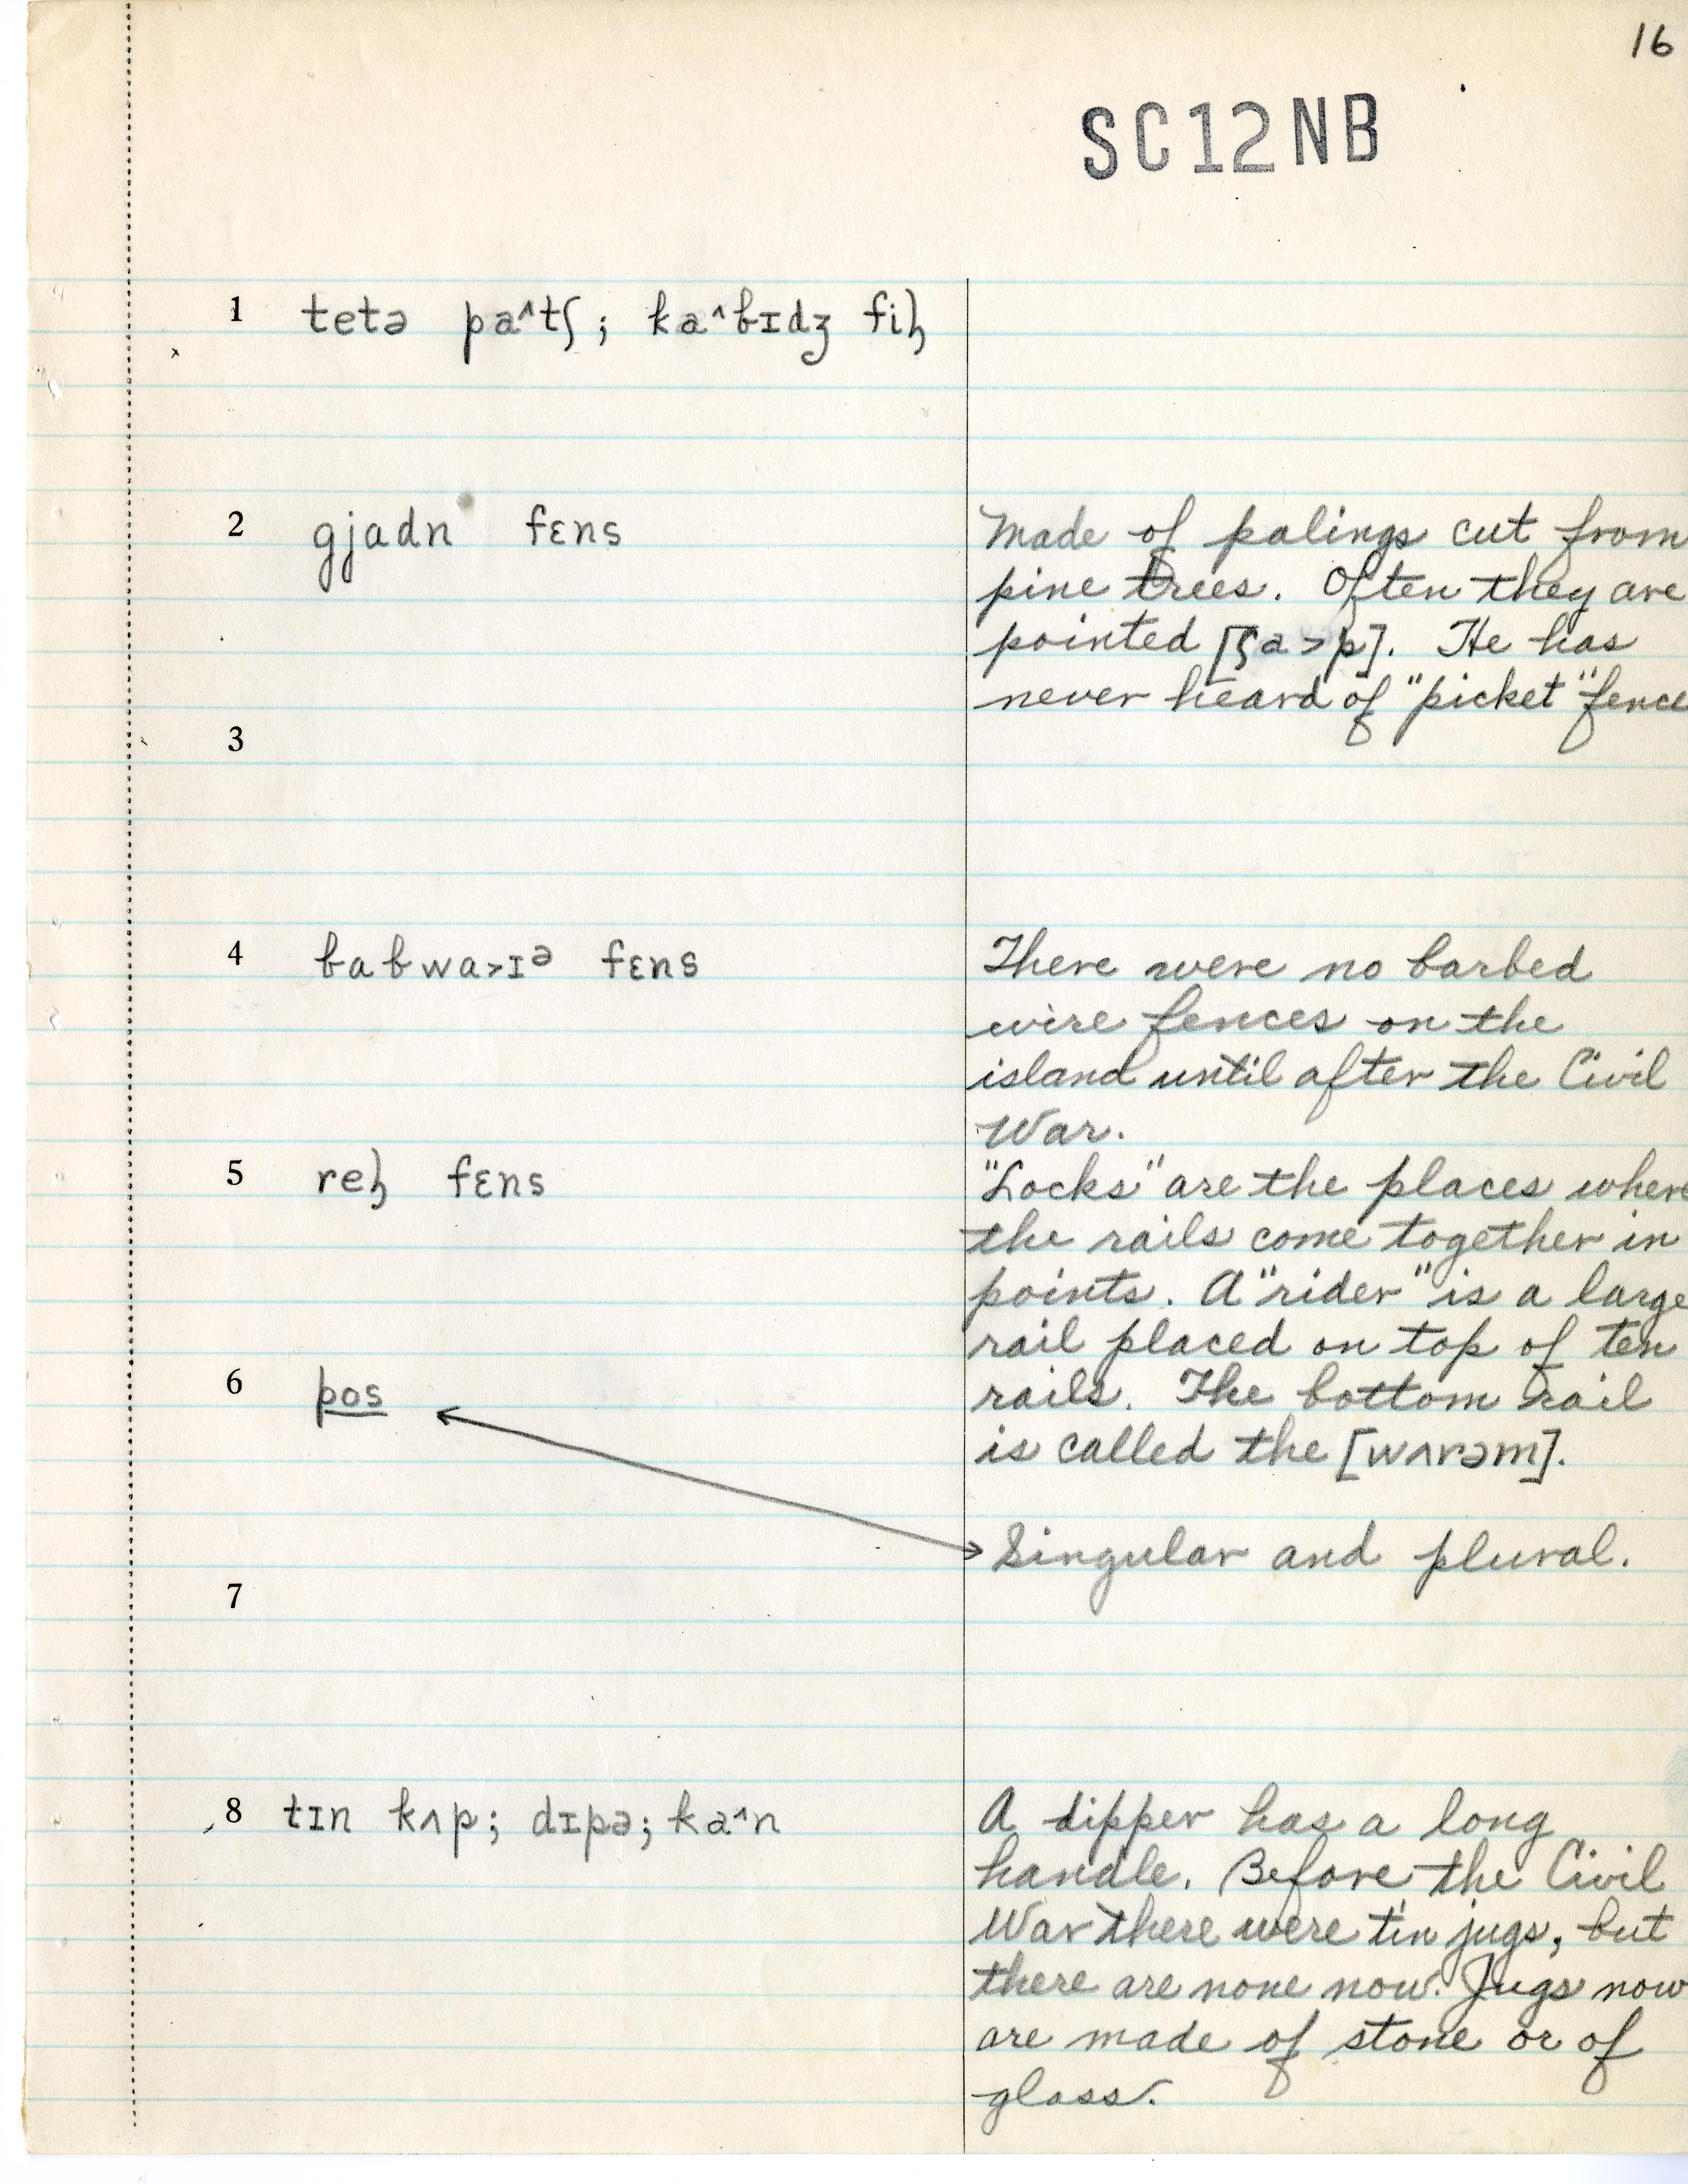 16
SC12NB
1 tetə pa^tʃ; ka^bɪdʒ fiɫ
2 gjadn fɛns
Made of palings cut from
pine trees. Often they are
pointed [ʃa>p]. He has
never heard of "picket" fence
3
4 babwa>ɪᵊ fɛns
There were no barbed
wire fences on the
island until after the Civil
War.
5 reɫ fɛns
"Locks" are the places where
the rails come together in
points. A "rider" is a large
rail placed on top of ten
rails. The bottom rail
is called the [wʌrəm].
6 pos
Singular and plural.
7
8 tɪn kʌp; dɪpə; ka^n
A dipper has a long
handle. Before the Civil
War there were tin jugs, but
there are none now. Jugs now
are made of stone or of
glass.